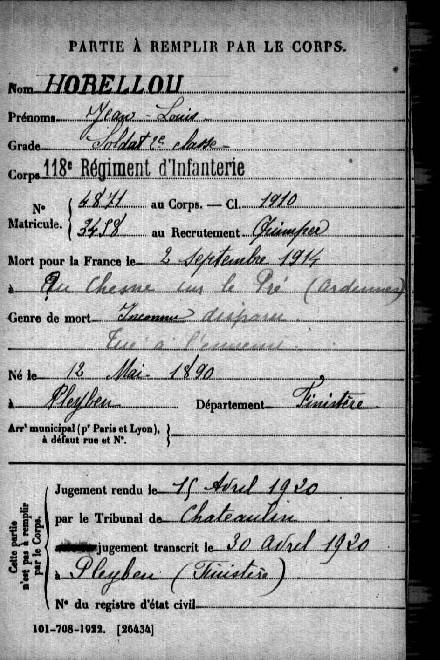 PARTIE À REMPLIR PAR LE CORPS.
Nom HORELLOU
Prénoms Jean-Louis
Grade Soldat 2e classe
Corps 118e Régiment d'Infanterie
No Matricule. 4871 au Corps. — Cl. 1910
3498 au Recrutement Quimper
Mort pour la France le 2 septembre 1914
à Au Chesne sur le Pré (Ardennes)
Genre de mort Inconnu disparu
Tué à l'ennemi
Né le 12 Mai 1890
à Pleyben Département Finistère
Arrt municipal (pr Paris et Lyon),
à défaut rue et No.
Cette partie
n'est pas à remplir
par le Corps.
Jugement rendu le 15 Avril 1920
par le Tribunal de Chateaulin
jugement transcrit le 30 Avril 1920
à Pleyben (Finistère)
No du registre d'état civil
101-708-1922. [26434]